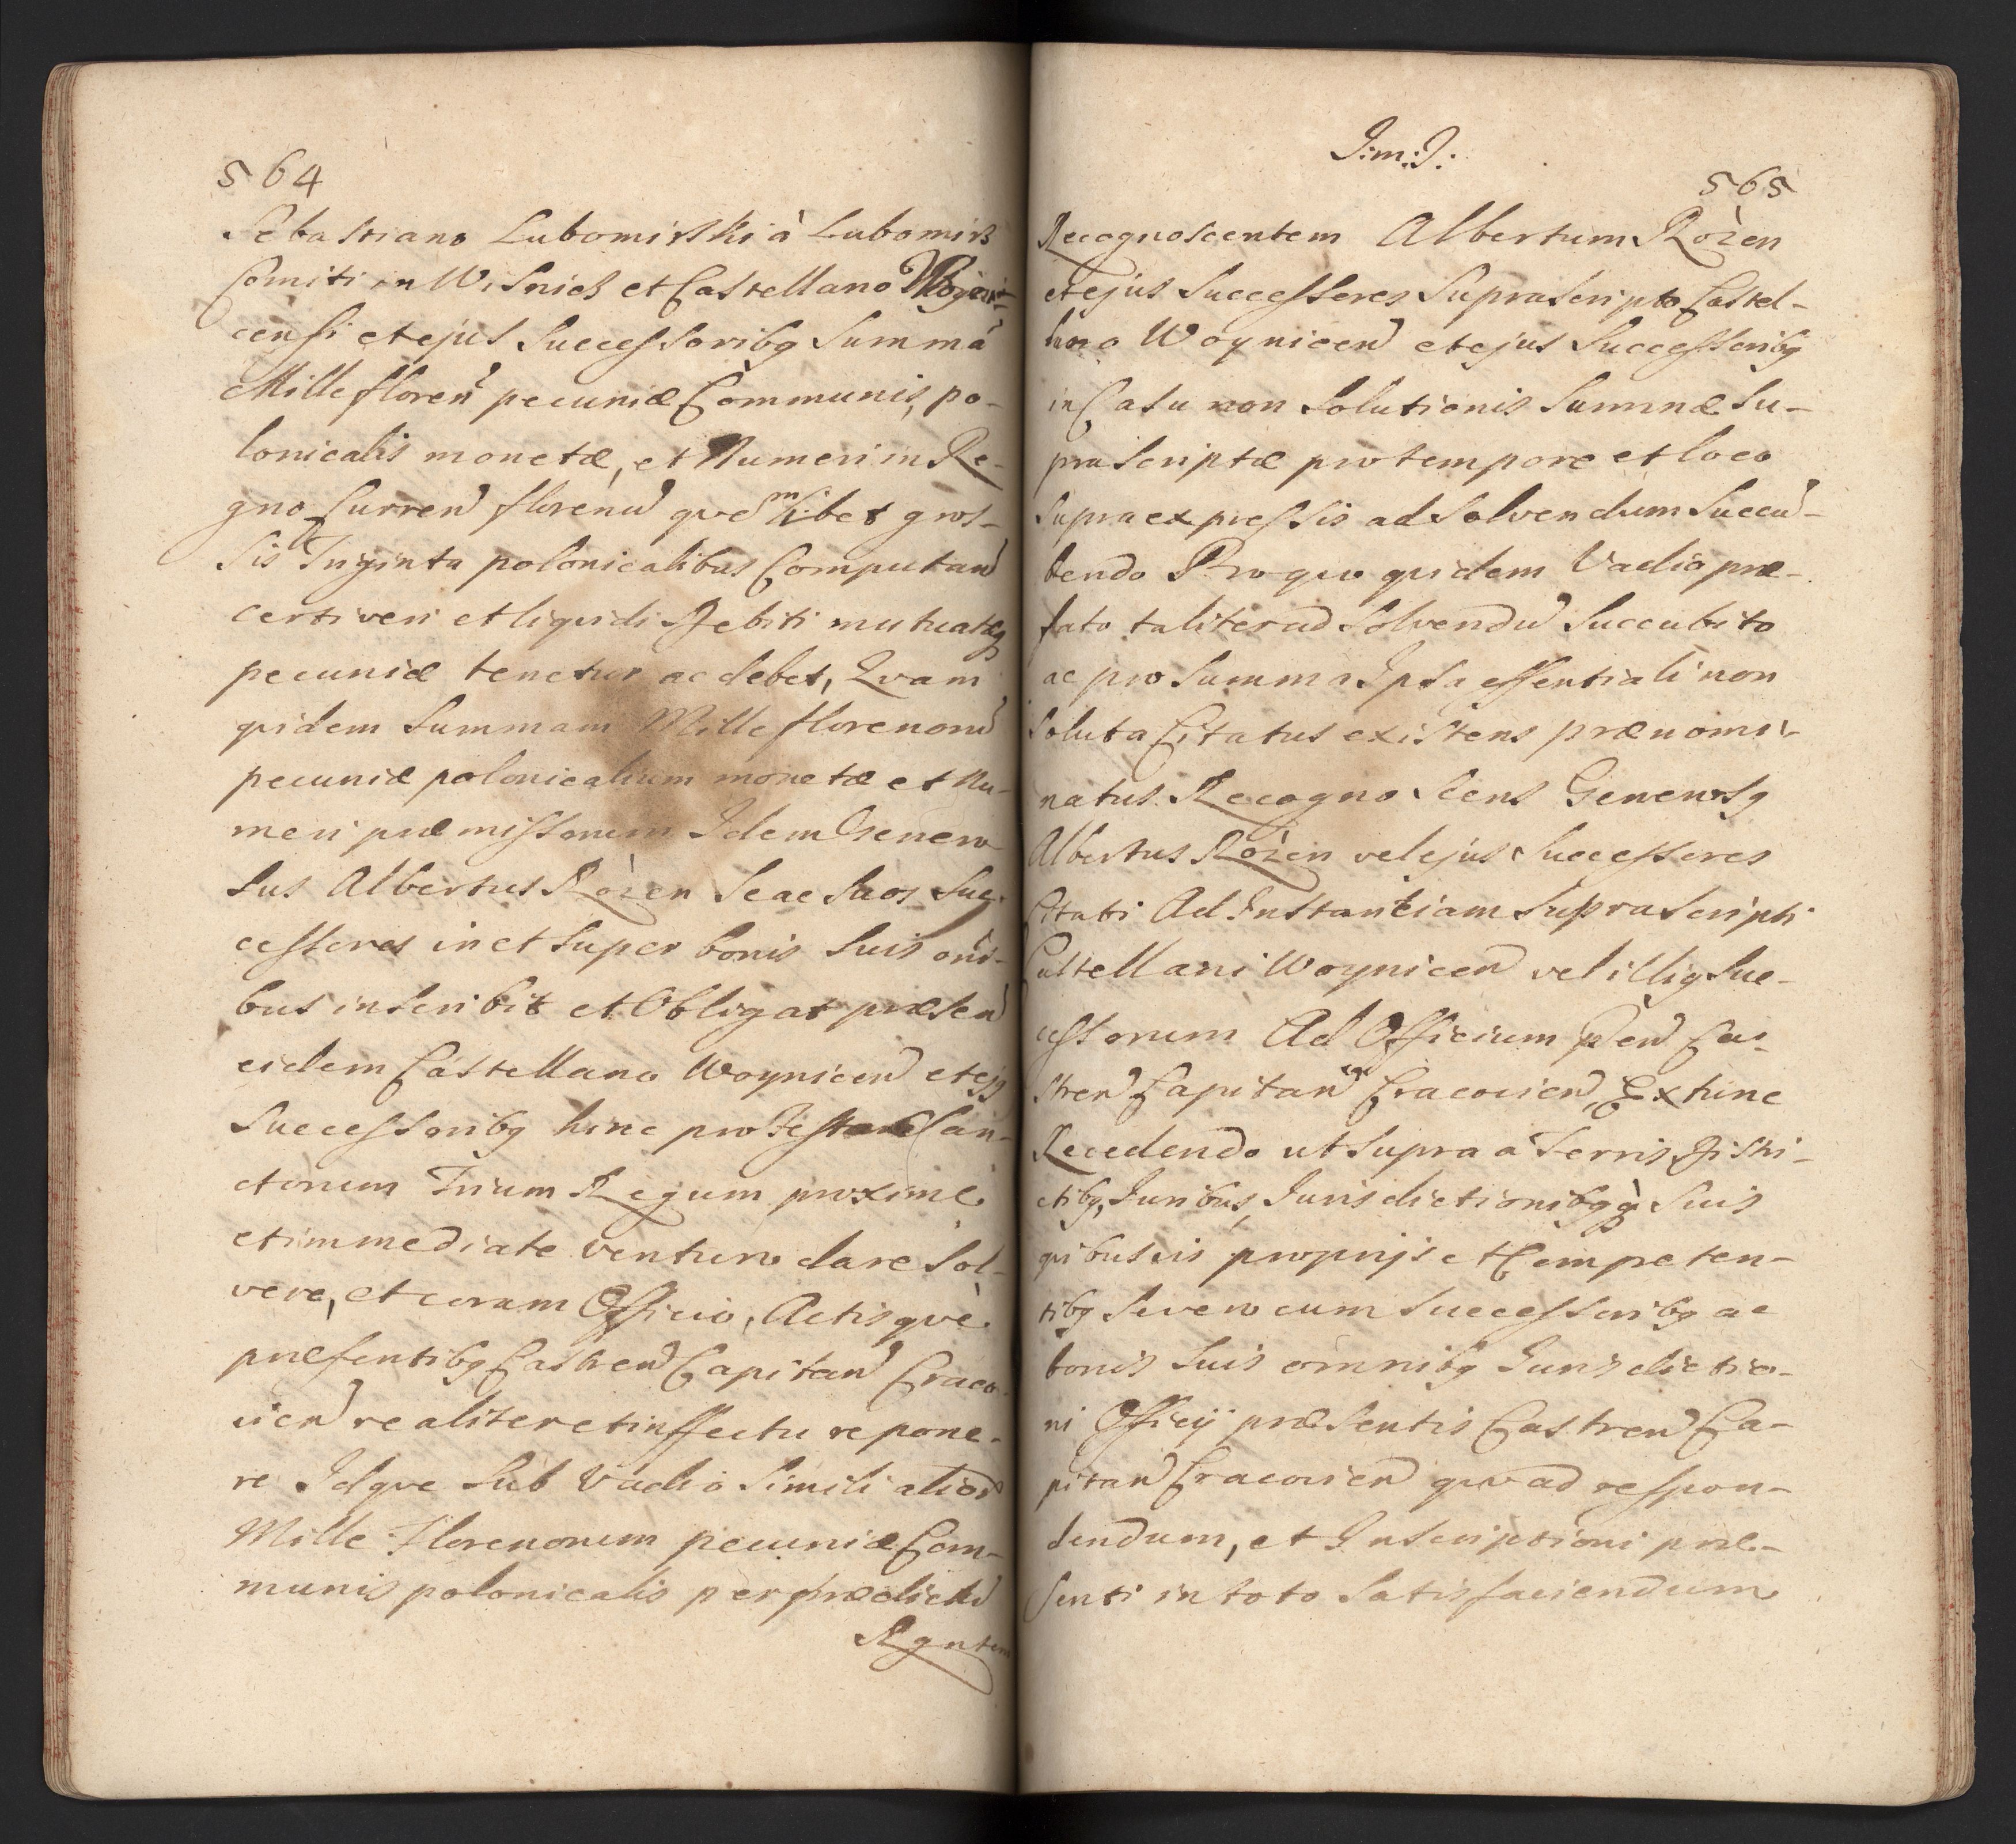 564
Sebastiano Lubomirski à Lubomirz
Comiti in Wisnicz et Castellano Woyni-
censi et ejus Successoribq Summā
Mille floren pecuniæ Communis, po-
lonicalis monetæ, et Numeri in Re-
gno Curren florenū quēmlibet gros-
sis Triginta polonicalibus Computan
certi veri et liquidi Debiti mutuatæq
pecuniæ tenetur ac debet, Qvam
qvidem Summam Mille florenorū
pecuniæ polonicalium monetæ et Nu-
meri præmissorum Idem Genero
sus Albertus Rożen Se ac Suos Suc-
cessores in et Super bonis Suis oni-
bus inscribit et Obligat præsen
eidem Castellano Woynicen et ejq
Successoribq hinc pro Festo San-
ctorum Trium Regum proxime
et immediate venturo dare Sol-
vere, et coram Officio, Actisqvè
præsentibq Castren Capitan Craco-
vien realiter et in effectu repone-
re Idqve Sub Vadio Simili aliorū
Mille Florenorum pecuniæ Com-
munis polonicalis per prædictū
Rgntem
J:m:J:
565
Recognoscentem Albertum Rożen
et ejus Successores Suprascripto Castel-
lano Woynicen et ejus Successoribq
in Casu non Solutionis Summæ Su-
prascriptæ pro tempore et loco
Supra expressis ad Solvendum Succū-
bendo Pro quo qvidem Vadio præ-
fato taliter ad Solvendū Succubito
ac pro Summa Ipsa essentiali non
Soluta Citatus existens prænomi-
natus Recognoscens Generosq
Albertus Rożen vel ejus Successores
Citati Ad Instantiam Suprascripti
Castellani Woynicen vel illiq Suc-
cessorum Ad Officium Pen Cas-
tren Capitan Cracovien, Exhinc
Recedendo ut Supra a Terris Distri-
ctibq, Juribus, Jurisdictionibqq Suis
qvibusvis proprijs et Competen-
tibq Se vero cum Successoribq ac
bonis Suis omnibq Jurisdictio-
ni Officij præsentis Castren Ca-
pitan Cracovien qvo ad respon-
dendum, et Inscriptioni præ-
senti in toto Satisfaciendum